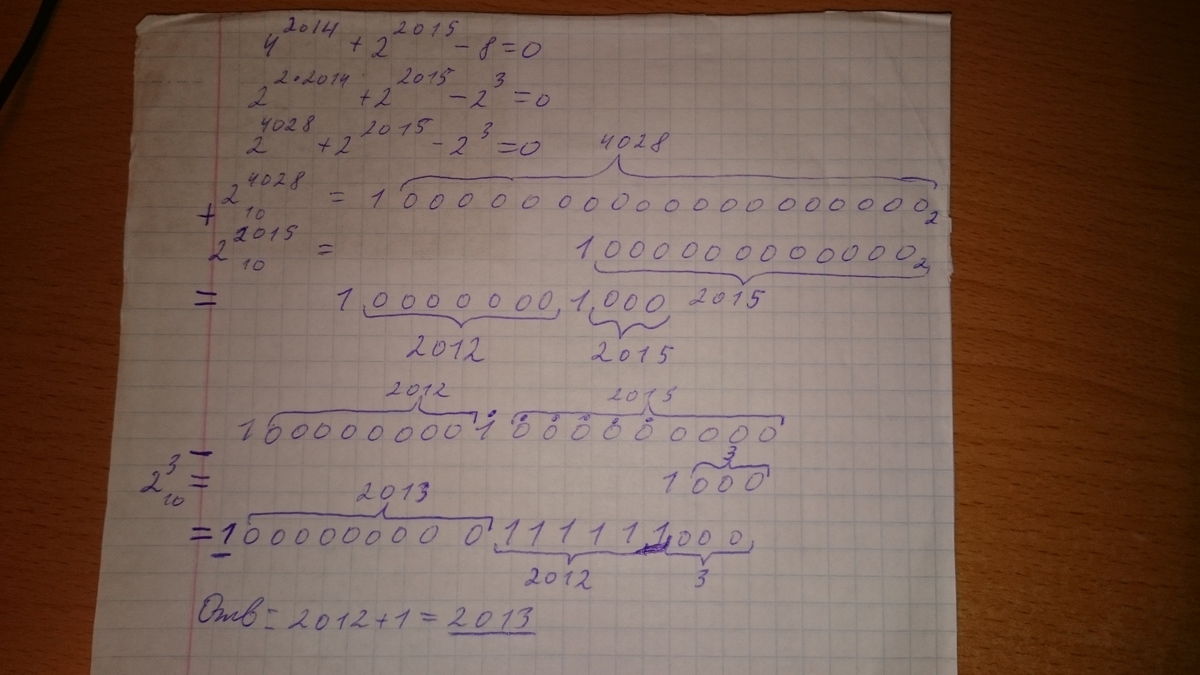 4^2014 + 2^2015 - 8 = 0
2^2·2014 + 2^2015 - 2^3 = 0
2^4028 + 2^2015 - 2^3 = 0
4028
+ 2^4028_10 = 1 0000000000000000000_2
2^2015_10 = 1 000000000000_2
2015
= 1 0000000 1 000
2012 2015
2012 2015
1 00000000 1 000000000
-
2^3_10 = 1 000
3
2013
= 1 000000000 111111 000
2012 3
Отв = 2012 + 1 = 2013